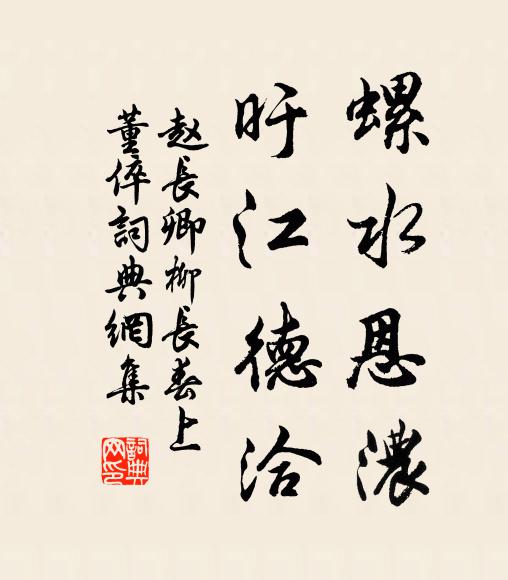 螺水恩濃
盱江德洽
赵長卿柳長春上
董倅詞典網集
詞典网印